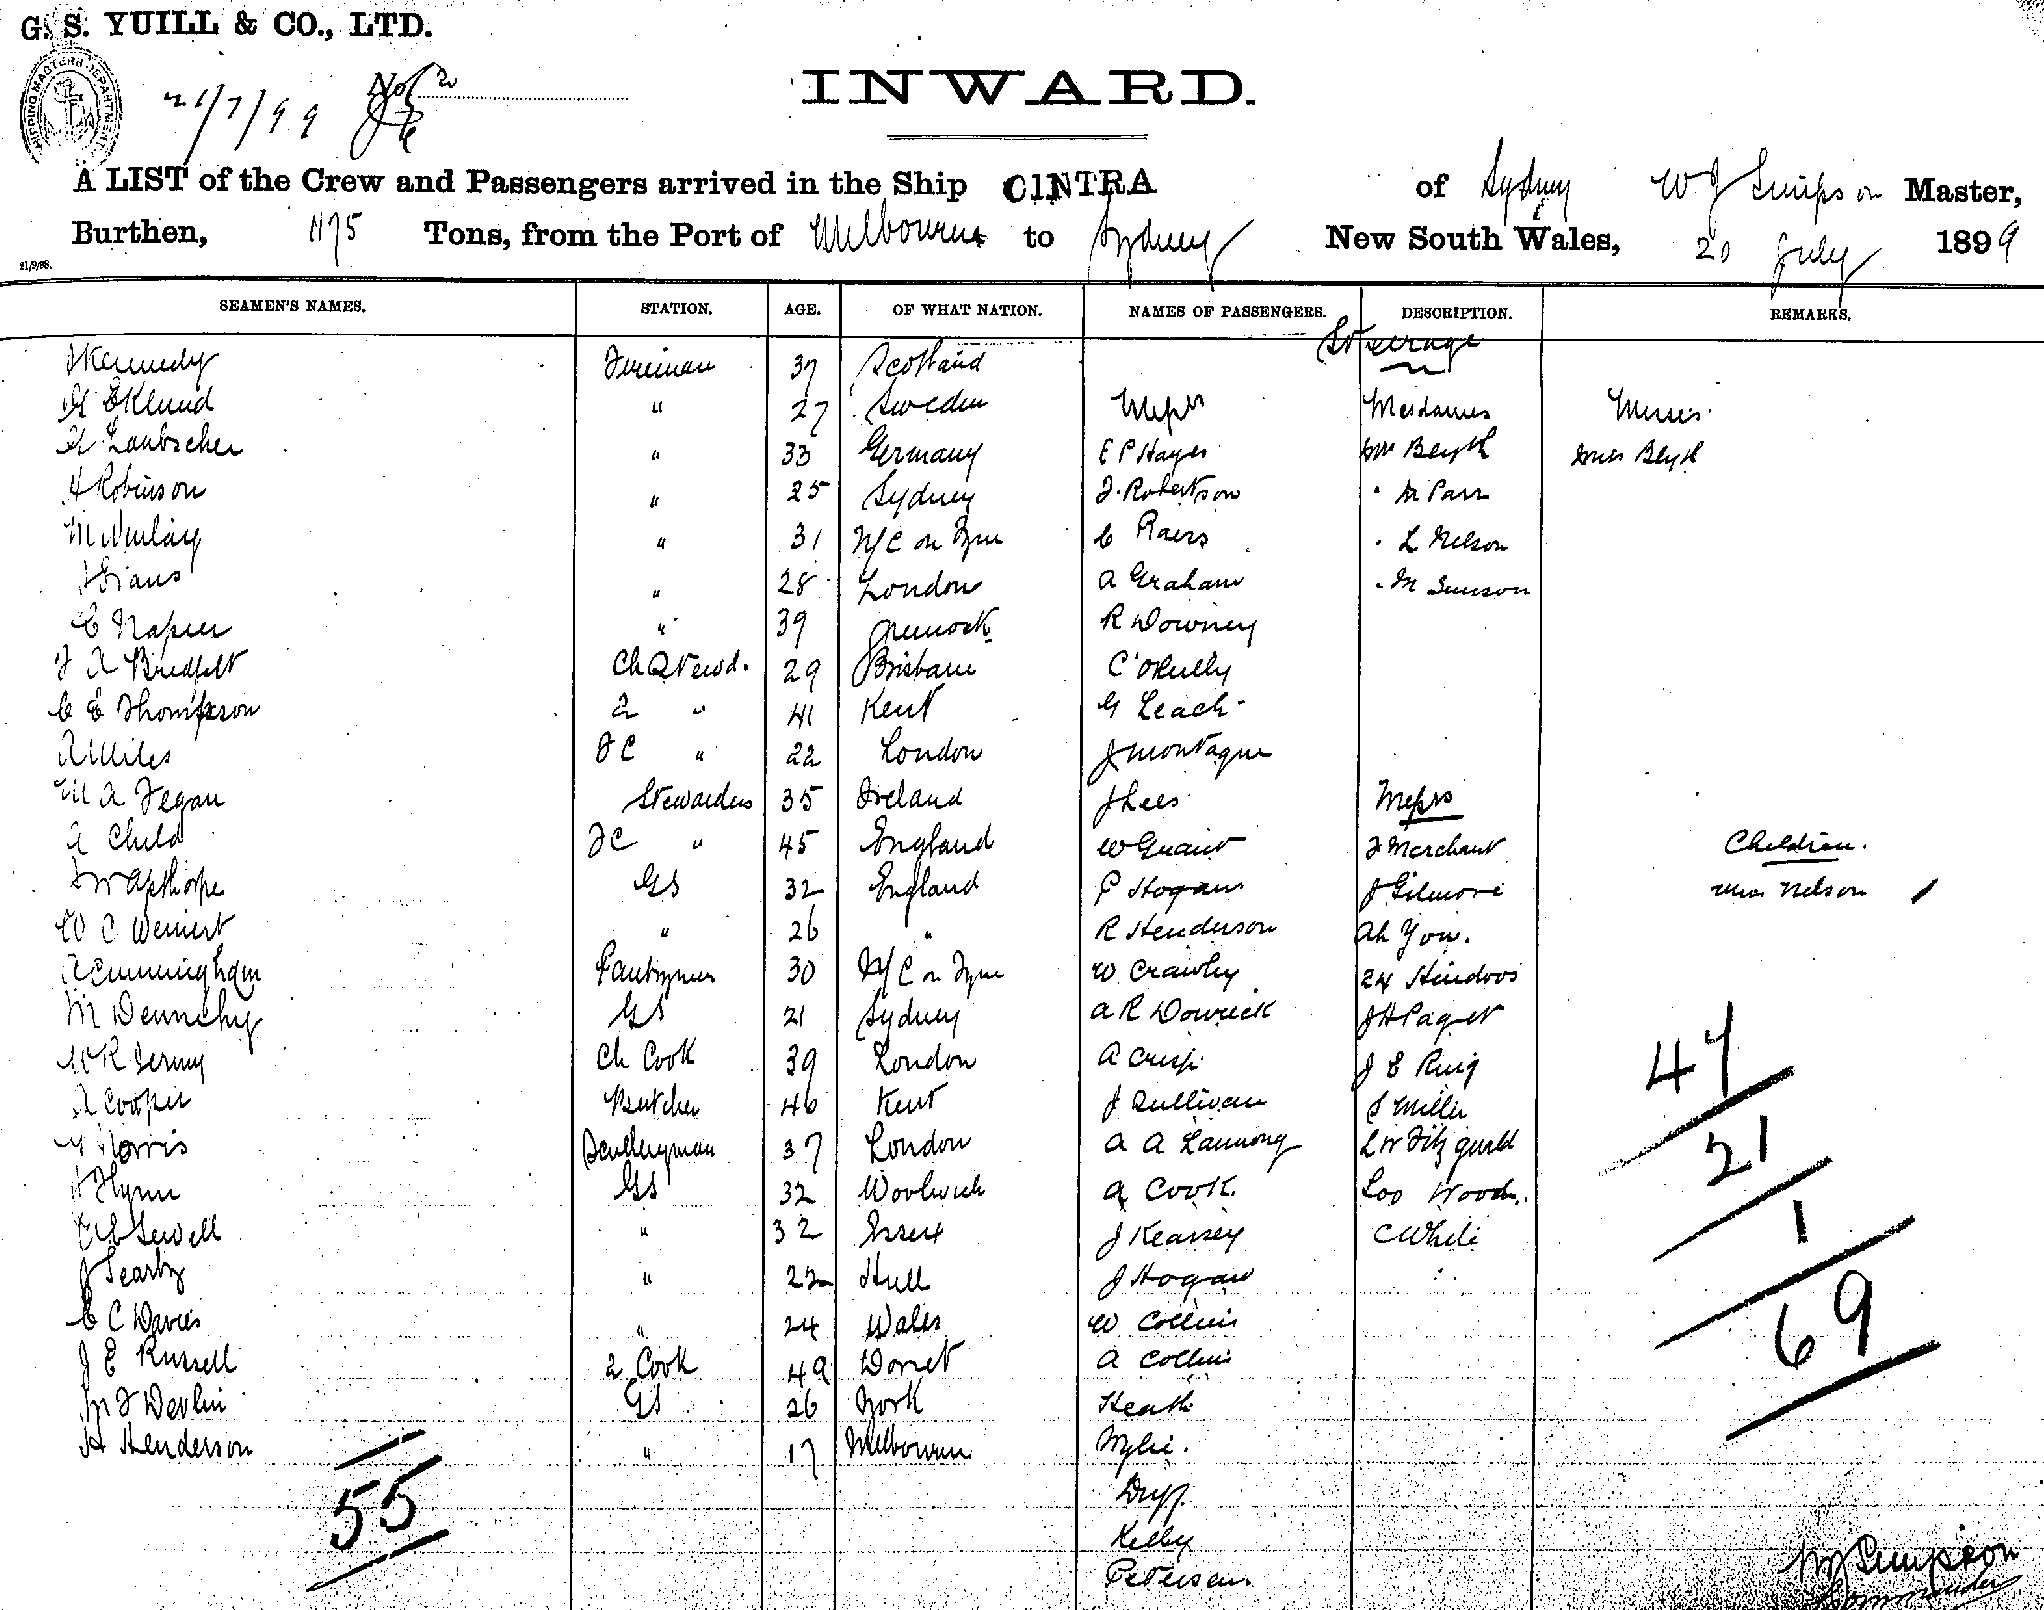 G. S. YUILL & CO., LTD.
SHIPPING MASTERS DEPARTMENT
21/7/99 No 2
INWARD.
A LIST of the Crew and Passengers arrived in the Ship CINTRA of Sydney W J Simpson Master,
Burthen, 1175 Tons, from the Port of Melbourne to Sydney New South Wales, 20 July 1899
21/9/98.
SEAMEN'S NAMES. STATION. AGE. OF WHAT NATION. NAMES OF PASSENGERS. DESCRIPTION. REMARKS.
Steerage
J Kennedy Fireman 37 Scotland
G Eklund " 27 Sweden Messrs Mesdames Misses
H Laubscher " 33 Germany E P Hayes Mrs Blyth Miss Blyth
H Robinson " 25 Sydney J. Robertson " M Parr
" 31 N/C on Tyne C Raers " L Nelson
J Evans " 28 London A Graham " M Simson
C Napier " 39 Greenock R Downey
J A Bredfelt Ch Stewd. 29 Brisbane C O'Reilly
C E Thompson 2 " 41 Kent G Leach
A Miles F C " 22 London J Montague
M A Fegan Stewardess 35 Ireland J Lees Messrs
A Child F C " 45 England W Grant J Merchant Children.
Apthorpe GS 32 England P Hogan J Gilmore Miss Nelson 1
W C Weinert " 26 " R Henderson Ah You.
A Cunningham Pantryman 30 N/C on Tyne W Crawley 24 Hindoos
M Dennehy GS 21 Sydney A R Dowrick J H Paget
W R Jermy Ch Cook 39 London A Crisp J E Ring
A Cooper Butcher 46 Kent J Sullivan S Miller
Morris Sculleryman 37 London A A Lannong L W Fitzgerald
H Flynn GS 32 Woolwich A Cook Loo Wood.
Sewell " 32 Essex J Kearsey C White
J Searby " 22 Hull J Hogan
E C Davies " 24 Wales W Collins
J E Russell 2 Cook 49 Dorset A Collins
M J Devlin GS 26 York Heath
H Henderson " 17 Melbourne Wylie.
55
Kelly
Petersen
47
21
1
69
W J Simpson
Commander